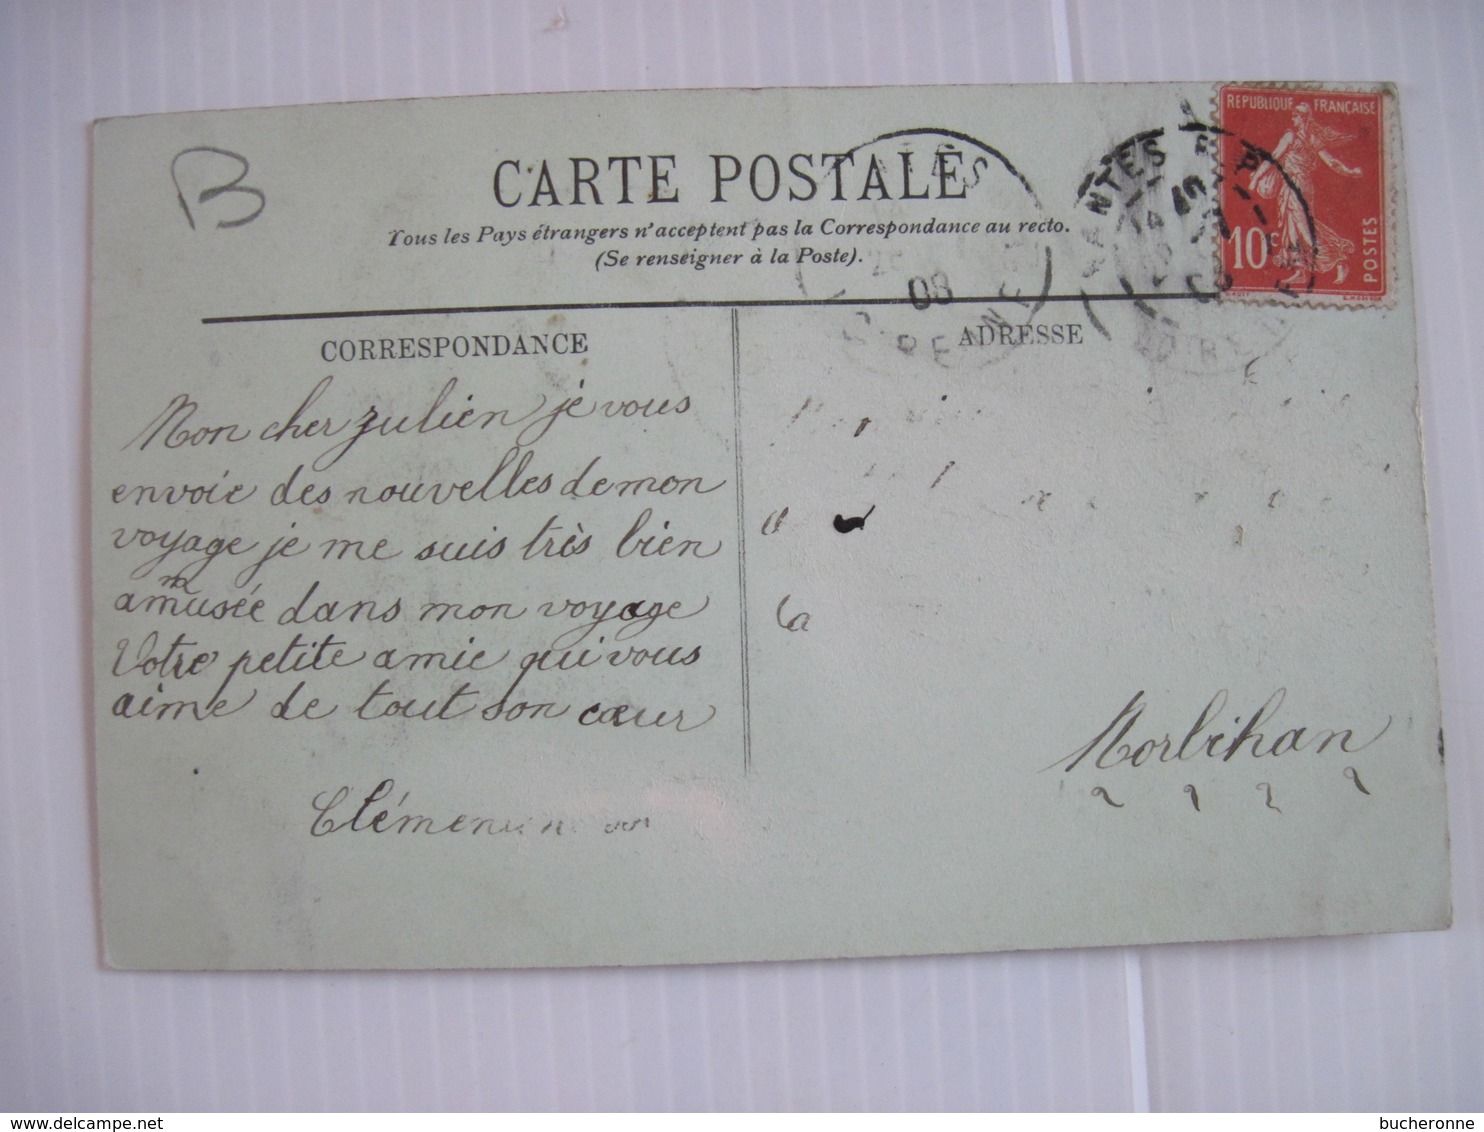 B
CARTE POSTALE
Tous les Pays étrangers n'acceptent pas la Correspondance au recto.
(Se renseigner à la Poste).
REPUBLIQUE FRANÇAISE
10c
POSTES
NANTES
08
CORRESPONDANCE
ADRESSE
Mon cher Julien je vous
envoie des nouvelles de mon
voyage je me suis très bien
amusée dans mon voyage
Votre petite amie qui vous
aime de tout son cœur
Morbihan
bucheronne
www.delcampe.net